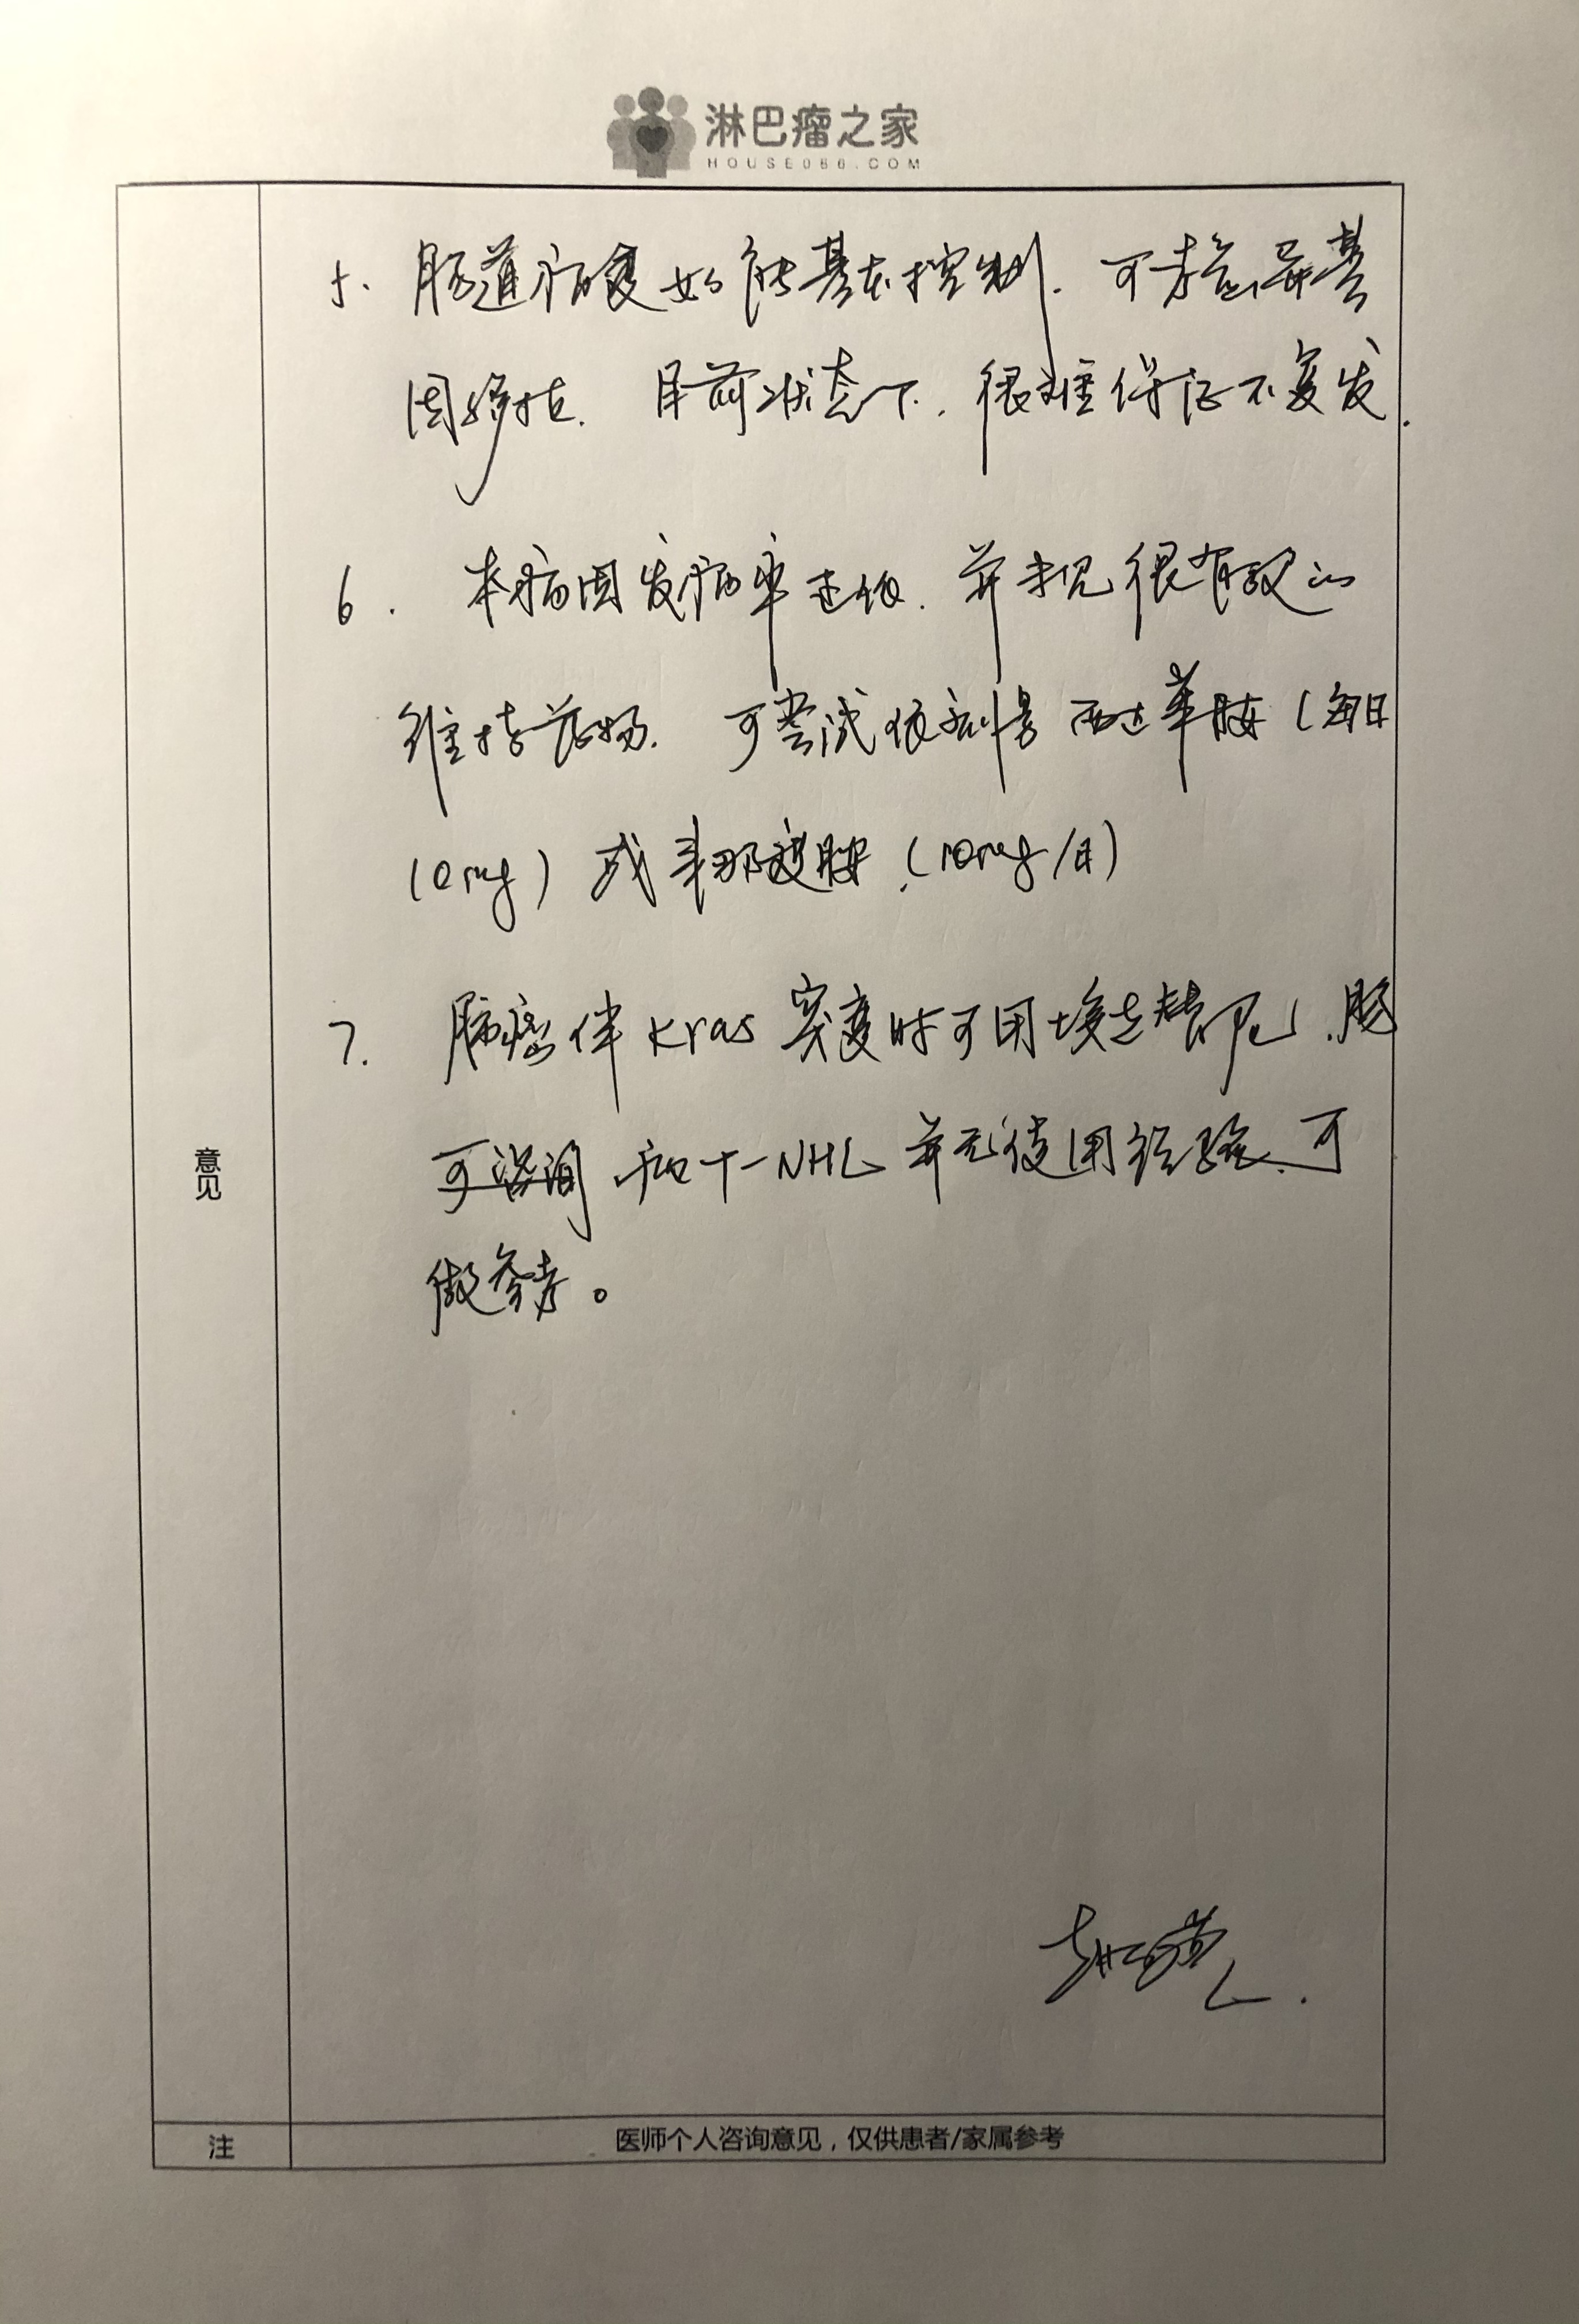 淋巴瘤之家
HOUSE086.COM
5. 肠道病变如能基本控制. 可考虑异基
因移植. 目前状态下, 很难保证不复发.
6. 本病因发病率过低. 并未见很有效的
维持药物. 可尝试依剂量西达苯胺(每日
10mg)或来那度胺.(10mg/日)
7. 肺癌伴Kras突变时可用埃克替尼.肠
可咨询 和T-NHL并无使用经验.可
做参考。
意见
注
医师个人咨询意见，仅供患者/家属参考